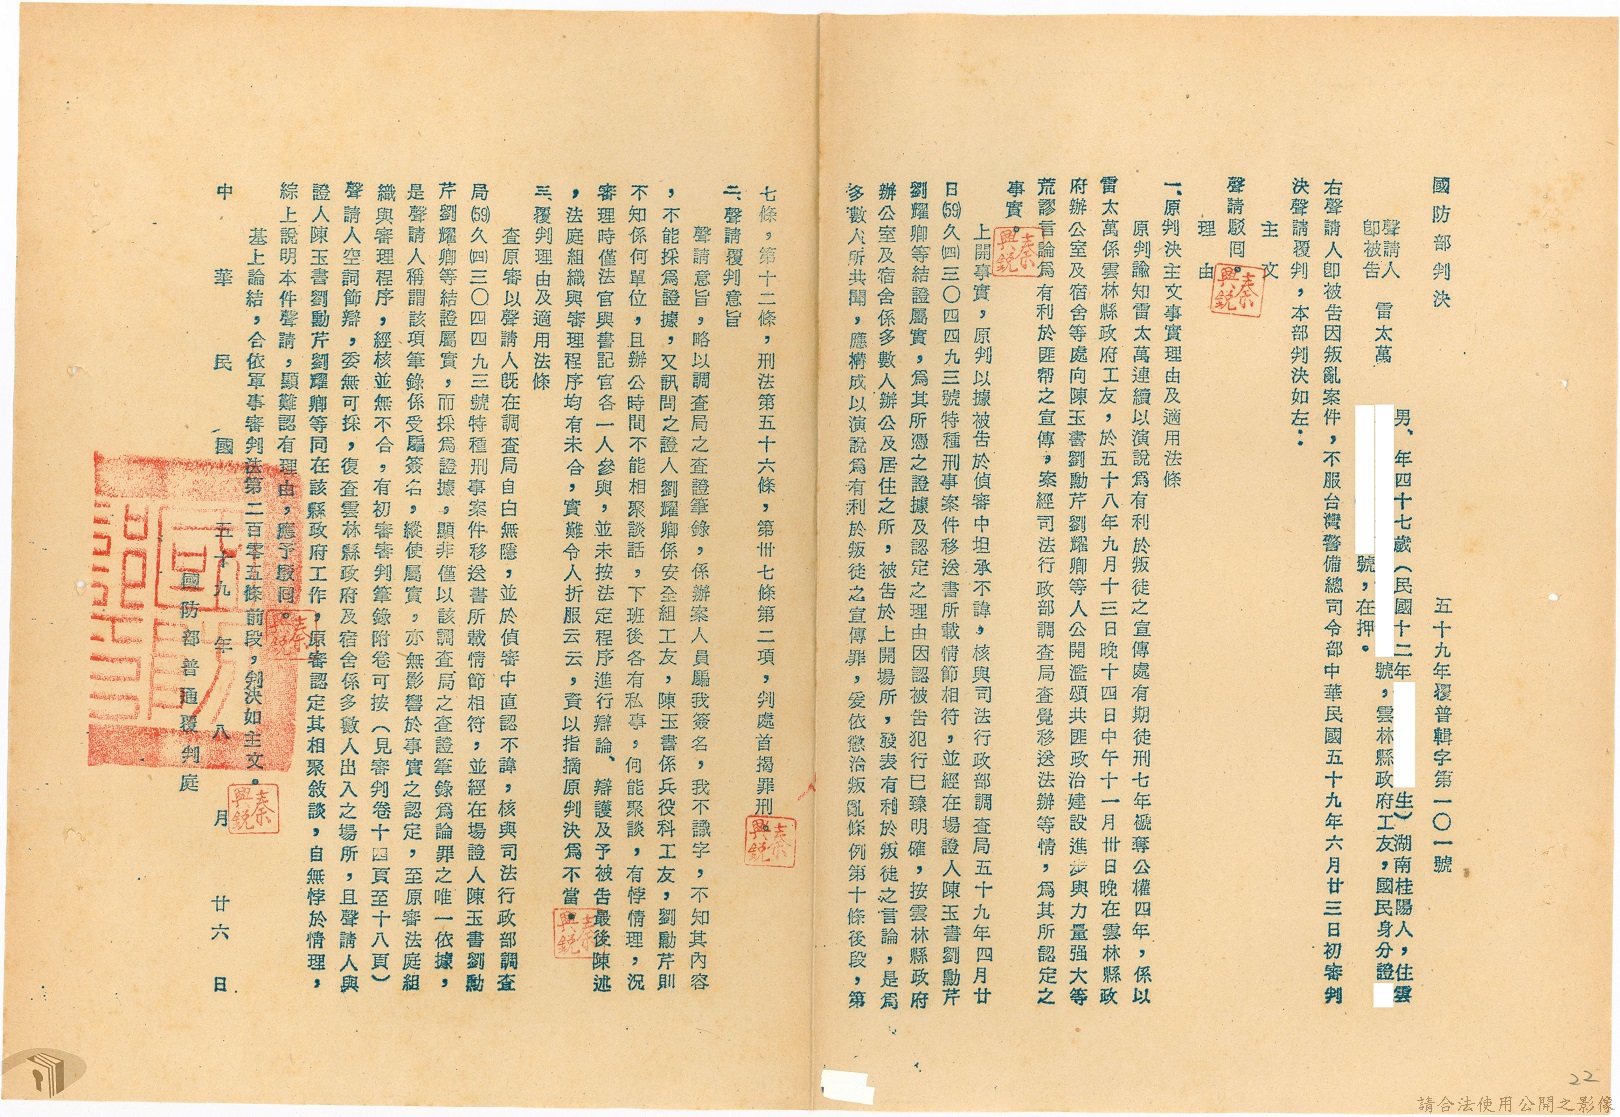 國防部判決
五十九年覆普輯字第一〇一號
聲請人
即被告
雷太萬
男、年四十七歲（民國十二年
生）湖南桂陽人，住雲
號，雲林縣政府工友，國民身分證
號，在押。
右聲請人即被告因叛亂案件，不服台灣警備總司令部中華民國五十九年六月廿三日初審判
決聲請覆判，本部判決如左：
主文
聲請駁回。
理由
一、原判決主文事實理由及適用法條
原判諭知雷太萬連續以演說為有利於叛徒之宣傳處有期徒刑七年褫奪公權四年，係以
雷太萬係雲林縣政府工友，於五十八年九月十三日晚十四日中午十一月卅日晚在雲林縣政
府辦公室及宿舍等處向陳玉書劉勳芹劉耀卿等人公開濫頌共匪政治建設進步與力量强大等
荒謬言論為有利於匪幫之宣傳，案經司法行政部調查局查覺移送法辦等情，為其所認定之
事實。
上開事實，原判以據被告於偵審中坦承不諱，核與司法行政部調查局五十九年四月廿
日(59)久(四)三〇四四九三號特種刑事案件移送書所載情節相符，並經在場證人陳玉書劉勳芹
劉耀卿等結證屬實，為其所憑之證據及認定之理由因認被告犯行已臻明確，按雲林縣政府
辦公室及宿舍係多數人辦公及居住之所，被告於上開場所，發表有利於叛徒之言論，是為
多數人所共聞，應構成以演說為有利於叛徒之宣傳罪，爰依懲治叛亂條例第十條後段，第
七條，第十二條，刑法第五十六條，第卅七條第二項，判處首揭罪刑。
二、聲請覆判意旨
聲請意旨，略以調查局之查證筆錄，係辦案人員騙我簽名，我不識字，不知其內容
，不能採為證據，又訊問之證人劉耀卿係安全組工友，陳玉書係兵役科工友，劉勳芹則
不知係何單位，且辦公時間不能相聚談話，下班後各有私事，何能聚談，有悖情理，況
審理時僅法官與書記官各一人參與，並未按法定程序進行辯論、辯護及予被告最後陳述
，法庭組織與審理程序均有未合，實難令人折服云云，資以指摘原判決為不當。
三、覆判理由及適用法條
查原審以聲請人既在調查局自白無隱，並於偵審中直認不諱，核與司法行政部調查
局(59)久(四)三〇四四九三號特種刑事案件移送書所載情節相符，並經在場證人陳玉書劉勳
芹劉耀卿等結證屬實，而採為證據，顯非僅以該調查局之查證筆錄為論罪之唯一依據，
是聲請人稱謂該項筆錄係受騙簽名，縱使屬實，亦無影響於事實之認定，至原審法庭組
織與審理程序，經核並無不合，有初審審判筆錄附卷可按（見審判卷十四頁至十八頁）
聲請人空詞飾辯，委無可採，復查雲林縣政府及宿舍係多數人出入之場所，且聲請人與
證人陳玉書劉勳芹劉耀卿等同在該縣政府工作，原審認定其相聚敘談，自無悖於情理，
綜上說明本件聲請，顯難認有理由，應予駁回。
基上論結，合依軍事審判法第二百零五條前段，判決如主文。
中華民國五十九年八月廿六日
國防部普通覆判庭
秦興銳
秦興銳
秦興銳
秦興銳
秦興銳
秦興銳
22
請合法使用公開之影像